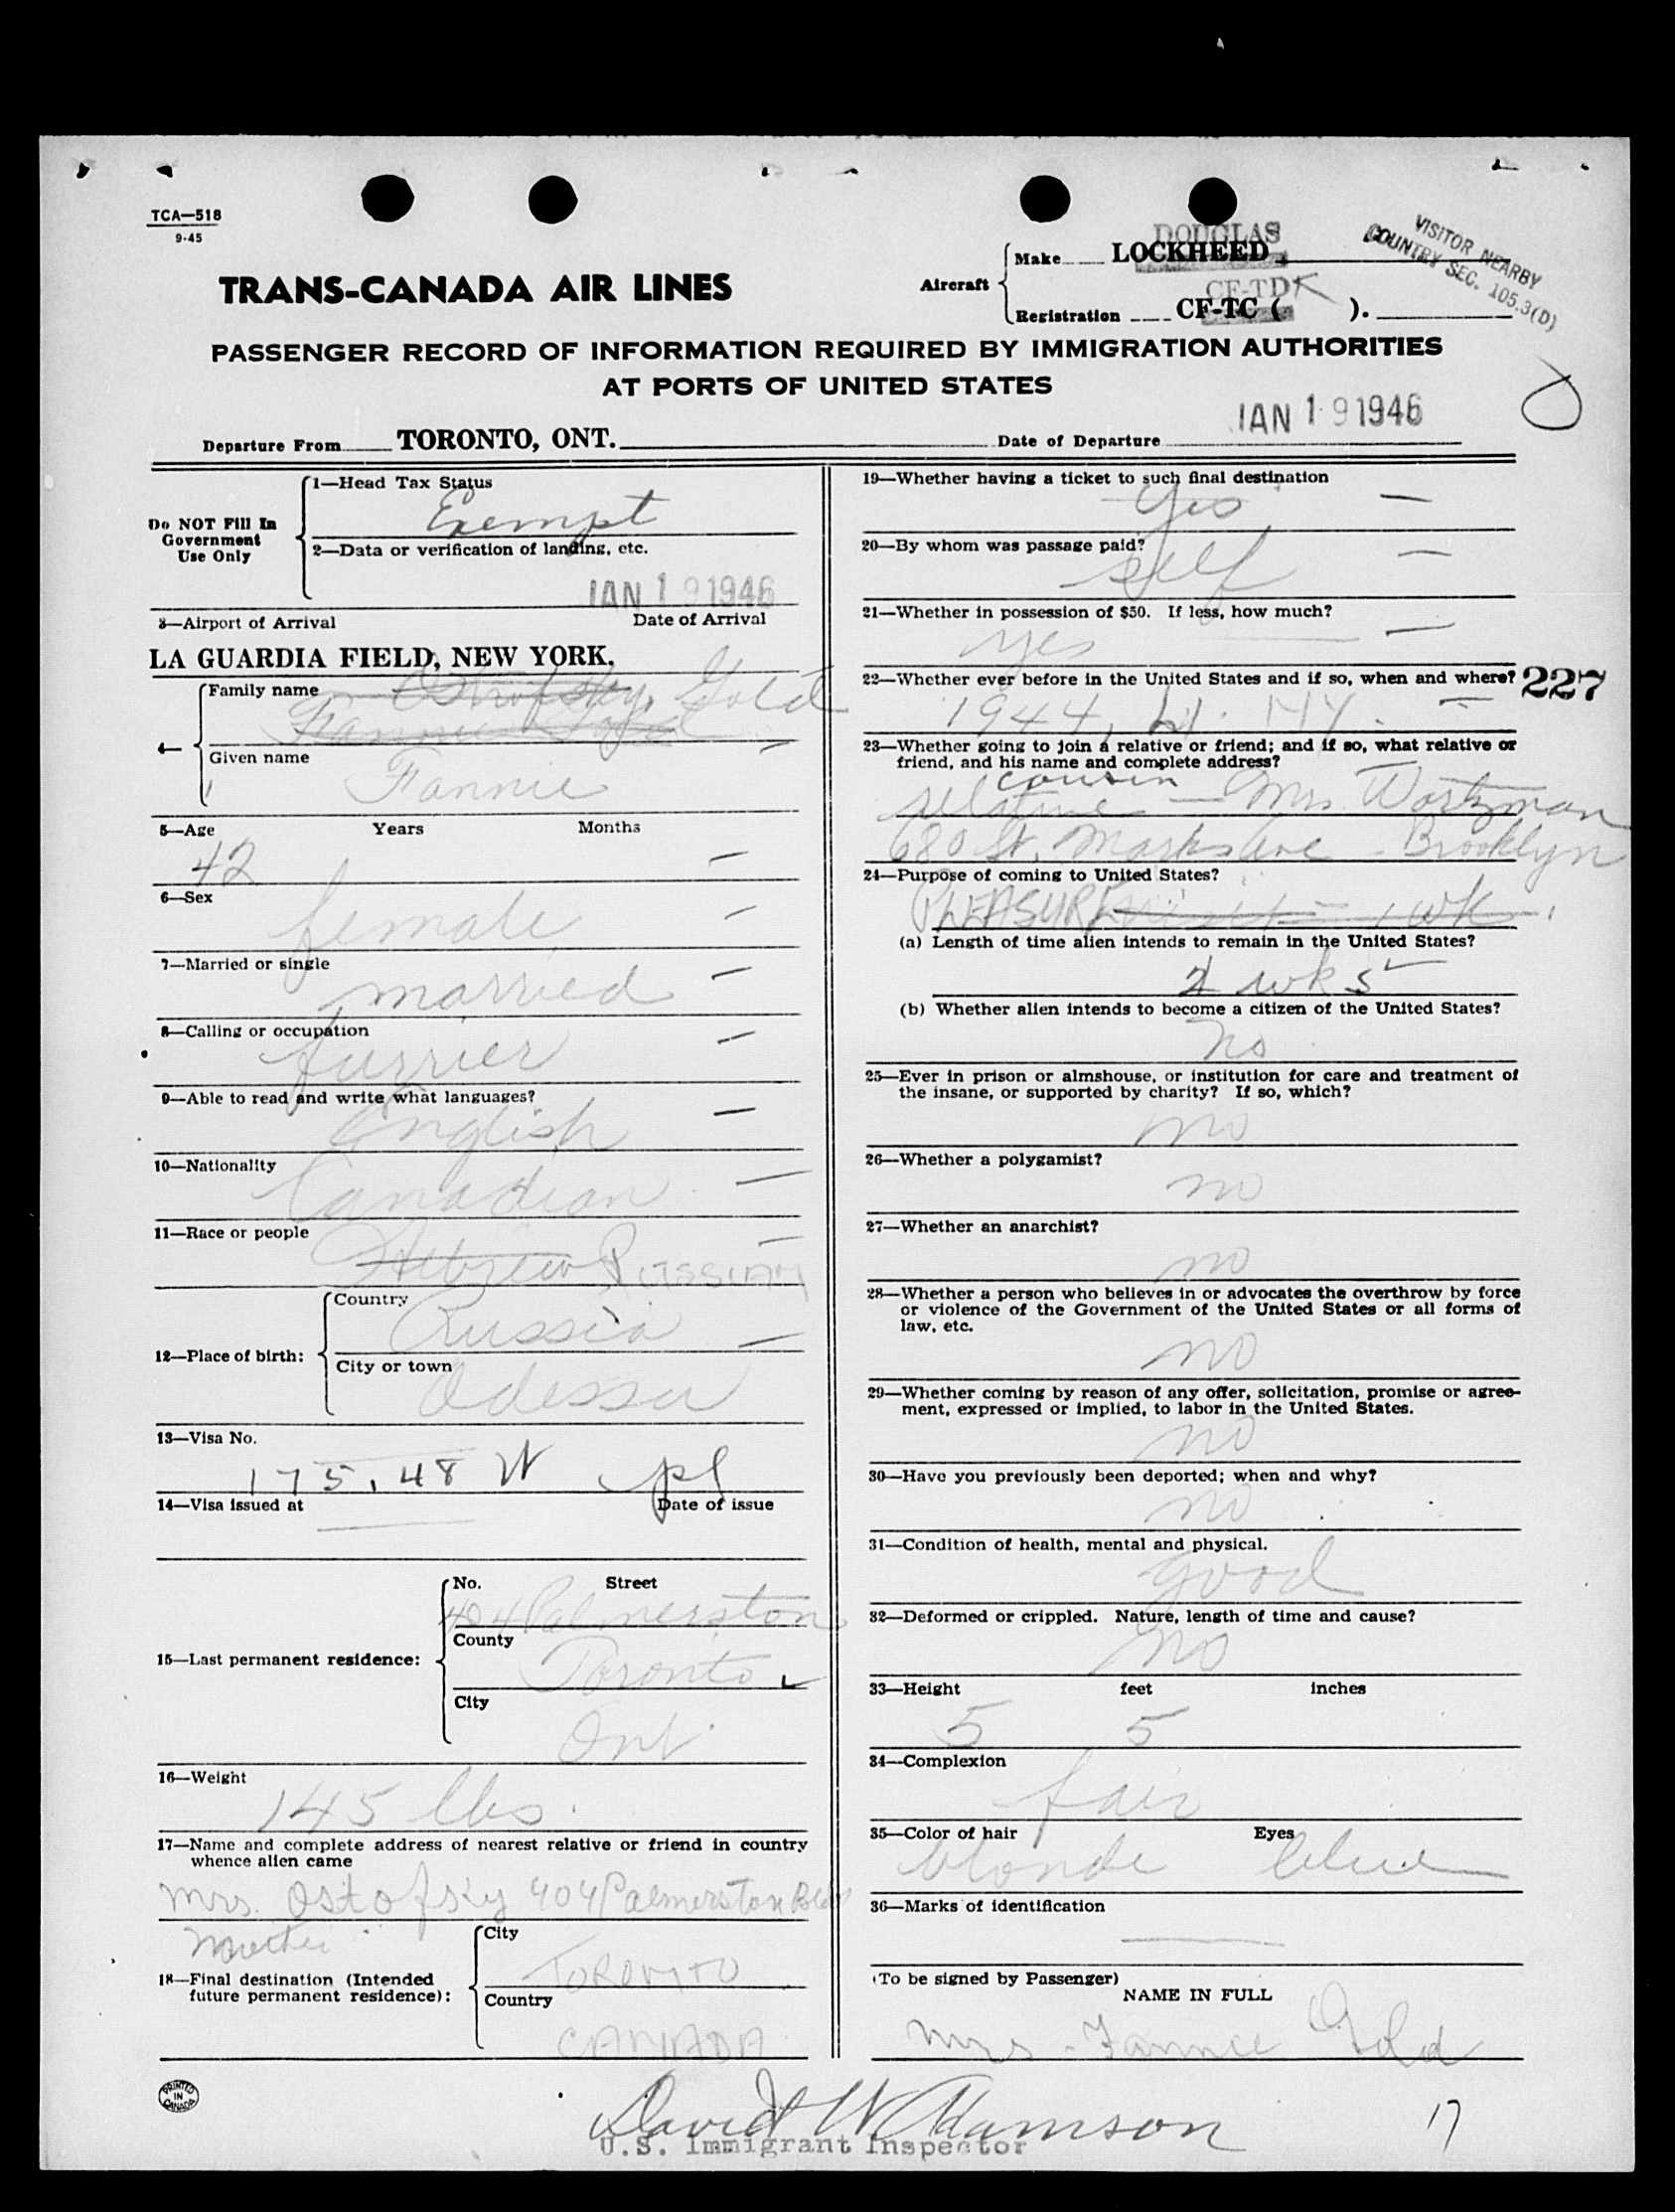 TCA—518
9-45
TRANS-CANADA AIR LINES
Aircraft
Make LOCKHEED
DOUGLAS
Registration CF-TC ( ).
CF-TDK
VISITOR NEARBY
COUNTRY SEC. 105.3(D)
PASSENGER RECORD OF INFORMATION REQUIRED BY IMMIGRATION AUTHORITIES
AT PORTS OF UNITED STATES
Departure From TORONTO, ONT.
Date of Departure JAN 19 1946
Do NOT Fill In
Government
Use Only
1—Head Tax Status
Exempt
2—Data or verification of landing, etc.
JAN 19 1946
3—Airport of Arrival Date of Arrival
LA GUARDIA FIELD, NEW YORK.
4—
Family name Gold
Given name
Fannie
5—Age Years Months
42
6—Sex
female
7—Married or single
married
8—Calling or occupation
furrier
9—Able to read and write what languages?
English
10—Nationality
Canadian
11—Race or people
Hebrew RUSSIAN
12—Place of birth:
Country
Russia
City or town
Odessa
13—Visa No.
175.48 W
14—Visa issued at Date of issue
15—Last permanent residence:
No. Street
404 Palmerston
County
Toronto
City
Ont.
16—Weight
145 lbs.
17—Name and complete address of nearest relative or friend in country
whence alien came
Mrs. Ostofsky 404 Palmerston Blvd
Mother
18—Final destination (Intended
future permanent residence):
City
TORONTO
Country
CANADA
19—Whether having a ticket to such final destination
Yes
20—By whom was passage paid?
self
21—Whether in possession of $50. If less, how much?
yes
22—Whether ever before in the United States and if so, when and where?
227
1944, N.Y.
23—Whether going to join a relative or friend; and if so, what relative or
friend, and his name and complete address?
cousin
relative — Mrs Wortzman
680 St. Marks Ave - Brooklyn
24—Purpose of coming to United States?
PLEASURE visit - 1 wk.
(a) Length of time alien intends to remain in the United States?
2 wks
(b) Whether alien intends to become a citizen of the United States?
No
25—Ever in prison or almshouse, or institution for care and treatment of
the insane, or supported by charity? If so, which?
no
26—Whether a polygamist?
no
27—Whether an anarchist?
no
28—Whether a person who believes in or advocates the overthrow by force
or violence of the Government of the United States or all forms of
law, etc.
no
29—Whether coming by reason of any offer, solicitation, promise or agree-
ment, expressed or implied, to labor in the United States.
no
30—Have you previously been deported; when and why?
no
31—Condition of health, mental and physical.
good
32—Deformed or crippled. Nature, length of time and cause?
no
33—Height feet inches
5 5
34—Complexion
fair
35—Color of hair Eyes
blonde blue
36—Marks of identification
(To be signed by Passenger)
NAME IN FULL
Mrs. Fannie Gold
PRINTED
IN
CANADA
David W Adamson
U.S. Immigrant Inspector
17